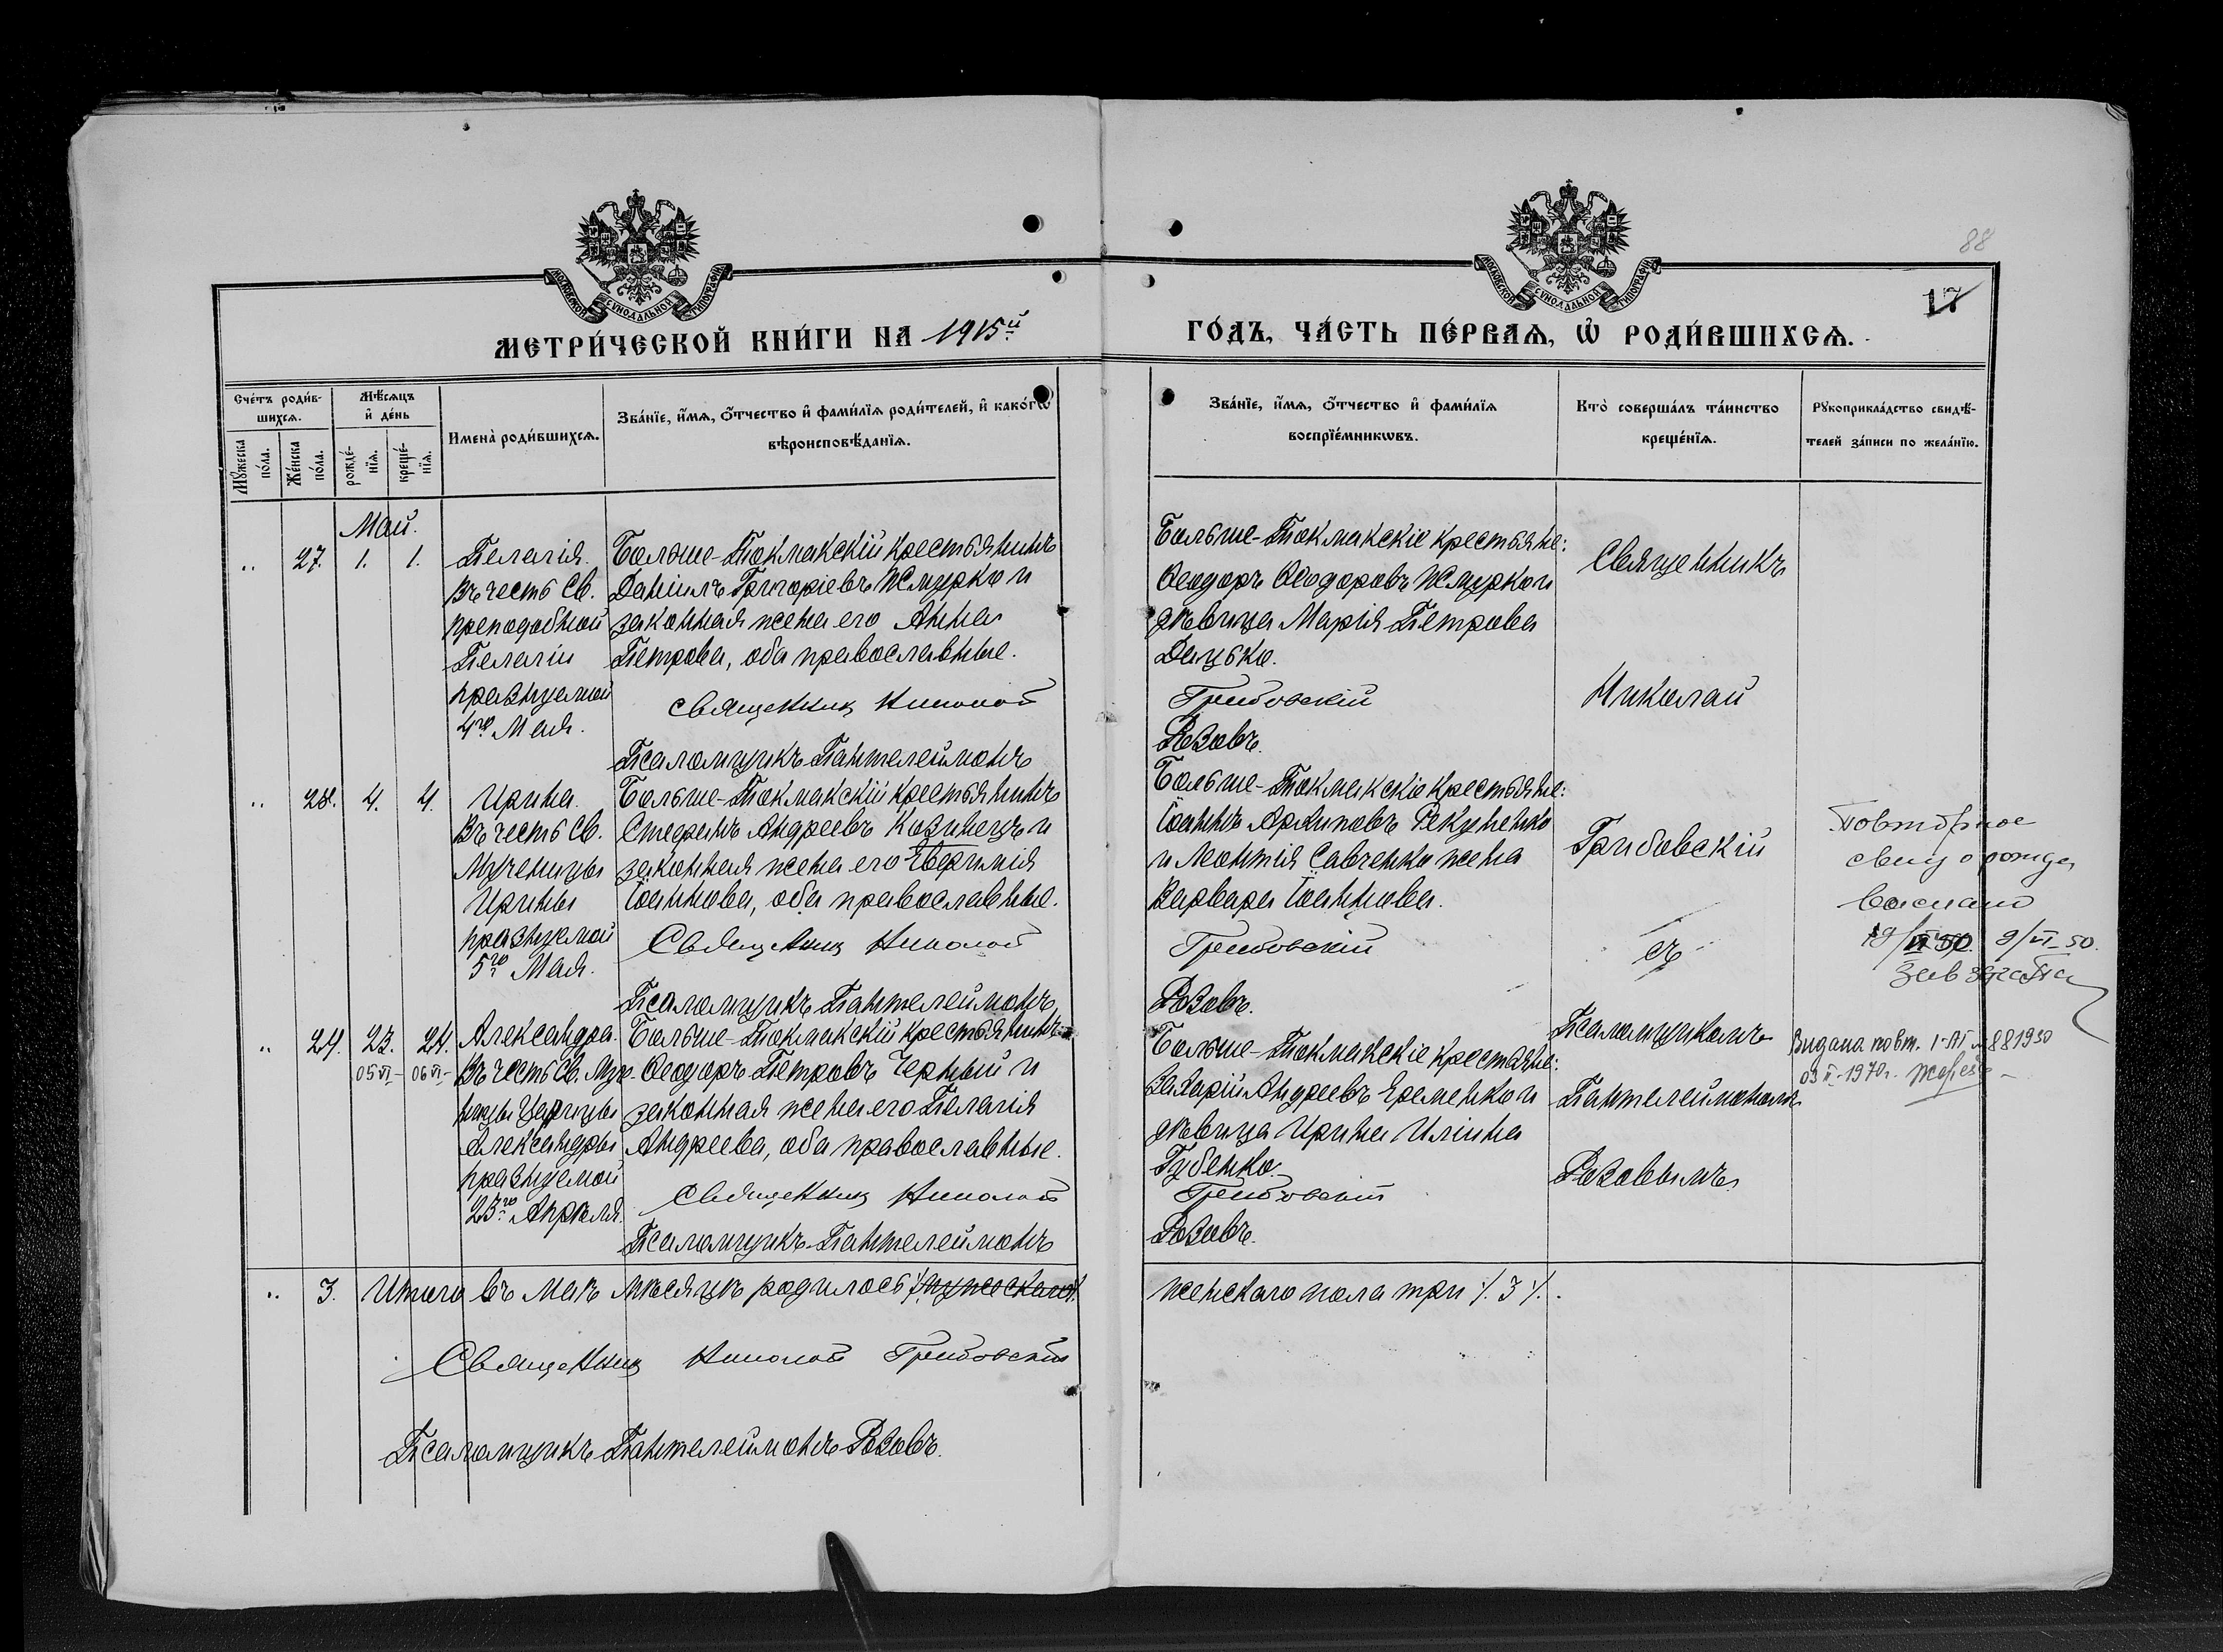 88
17
МОСКОВСКОЙ СУНОДАЛЬНОЙ ТИПОГРАФІИ
МОСКОВСКОЙ СУНОДАЛЬНОЙ ТИПОГРАФІИ
МЕТРИ́ЧЕСКОЙ КНИ́ГИ НА 1915й
ГО́ДЪ, ЧА́СТЬ ПЕ́РВАѦ, Ѡ҆ РОДИ́ВШИХСѦ.
Сче́тъ роди́в-
шихсѧ.
Мꙋ́жеска
по́ла.
Же́нска
по́ла.
Мѣ́сѧцъ
и҆ де́нь
рожде́-
нїѧ.
креще́-
нїѧ.
Имена̀ роди́вшихсѧ.
Зва́нїе, и҆́мѧ, ѻ҆́тчество и҆ фами́лїѧ роди́телей, и҆ како́гѡ
вѣроисповѣ́данїѧ.
Зва́нїе, и҆́мѧ, ѻ҆́тчество и҆ фами́лїѧ
воспрїе́мникѡвъ.
Кто̀ соверша́лъ та́инство
креще́нїѧ.
Рꙋкоприкла́дство свидѣ́-
телей за́писи по жела́нїю.
Май.
„ 27. 1. 1.
Пелагія.
въ честь Св.
преподобной
Пелагіи
празднуемой
4го Мая.
Больше-Токмакскій крестьянинъ
Даніилъ Григоріевъ Жмурко и
законная жена его Анна
Петрова, оба православные.
Священник Николай
Псаломщикъ Пантелеймонъ
Больше-Токмакскіе крестьяне:
Ѳеодоръ Ѳеодоровъ Жмурко и
дѣвица Марія Петрова
Дацько.
Грибовскій
Розовъ.
Священникъ
Николай
Грибовскій
съ
Псаломщикомъ
Пантелеймономъ
Розовымъ.
„ 28. 4. 4.
Ирина.
въ честь Св.
Мученицы
Ирины
празднуемой
5го Мая.
Больше-Токмакскій крестьянинъ
Стефанъ Андреевъ Козинецъ и
законная жена его Евфимія
Іоаннова, оба православные.
Священник Николай
Псаломщикъ Пантелеймонъ
Больше-Токмакскіе крестьяне:
Іоаннъ Архиповъ Рекуненко
и Леонтія Савченко жена
Варвара Іоаннова.
Грибовскій
Розовъ.
Повторное
свид о рожд
выслано
9/VI-50.
„ 29. 23. 24.
05 VI- 06 VI-
Александра.
въ честь Св. Муче-
ницы Царицы
Александры
празднуемой
23го Апрѣля.
Больше-Токмакскій крестьянинъ
Ѳеодоръ Петровъ Черный и
законная жена его Пелагія
Андреева, оба православные.
Священник Николай
Псаломщикъ Пантелеймонъ
Больше-Токмакскіе крестьяне:
Захарій Андреевъ Еременко и
дѣвица Ирина Иліина
Губенко.
Грибовскій
Розовъ.
Видана повт. I-ЖП № 881930
03 II-1970г.
„ 3. Итого въ Маѣ мѣсяцѣ родилось мужескаго женскаго пола три /. 3 /.
Священник Николай Грибовскій
Псаломщикъ Пантелеймонъ Розовъ.